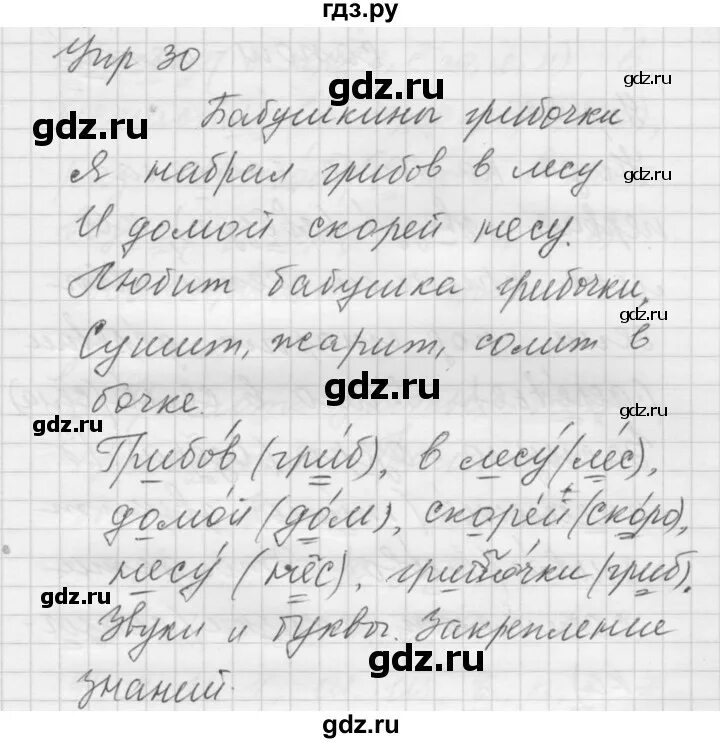 гдз.ру
Упр 30
gdz.ru
gdz.ru
Бабушкины грибочки
gdz.ru
Я набрал грибов в лесу
gdz.ru
И домой скорей несу.
gdz.ru
gdz.ru
Любит бабушка грибочки,
gdz.ru
Сушит, жарит, солит в
gdz.ru
бочке.
gdz.ru
gdz.ru
Грибо́в (гри́б), в лесу́ (ле́с),
домо́й (до́м), скоре́й (ско́ро),
gdz.ru
gdz.ru
несу́ (нёс), грибо́чки (гриб).
gdz.ru
gdz.ru
Звуки и буквы. Закрепление
gdz.ru
знаний.
gdz.ru
gdz.ru